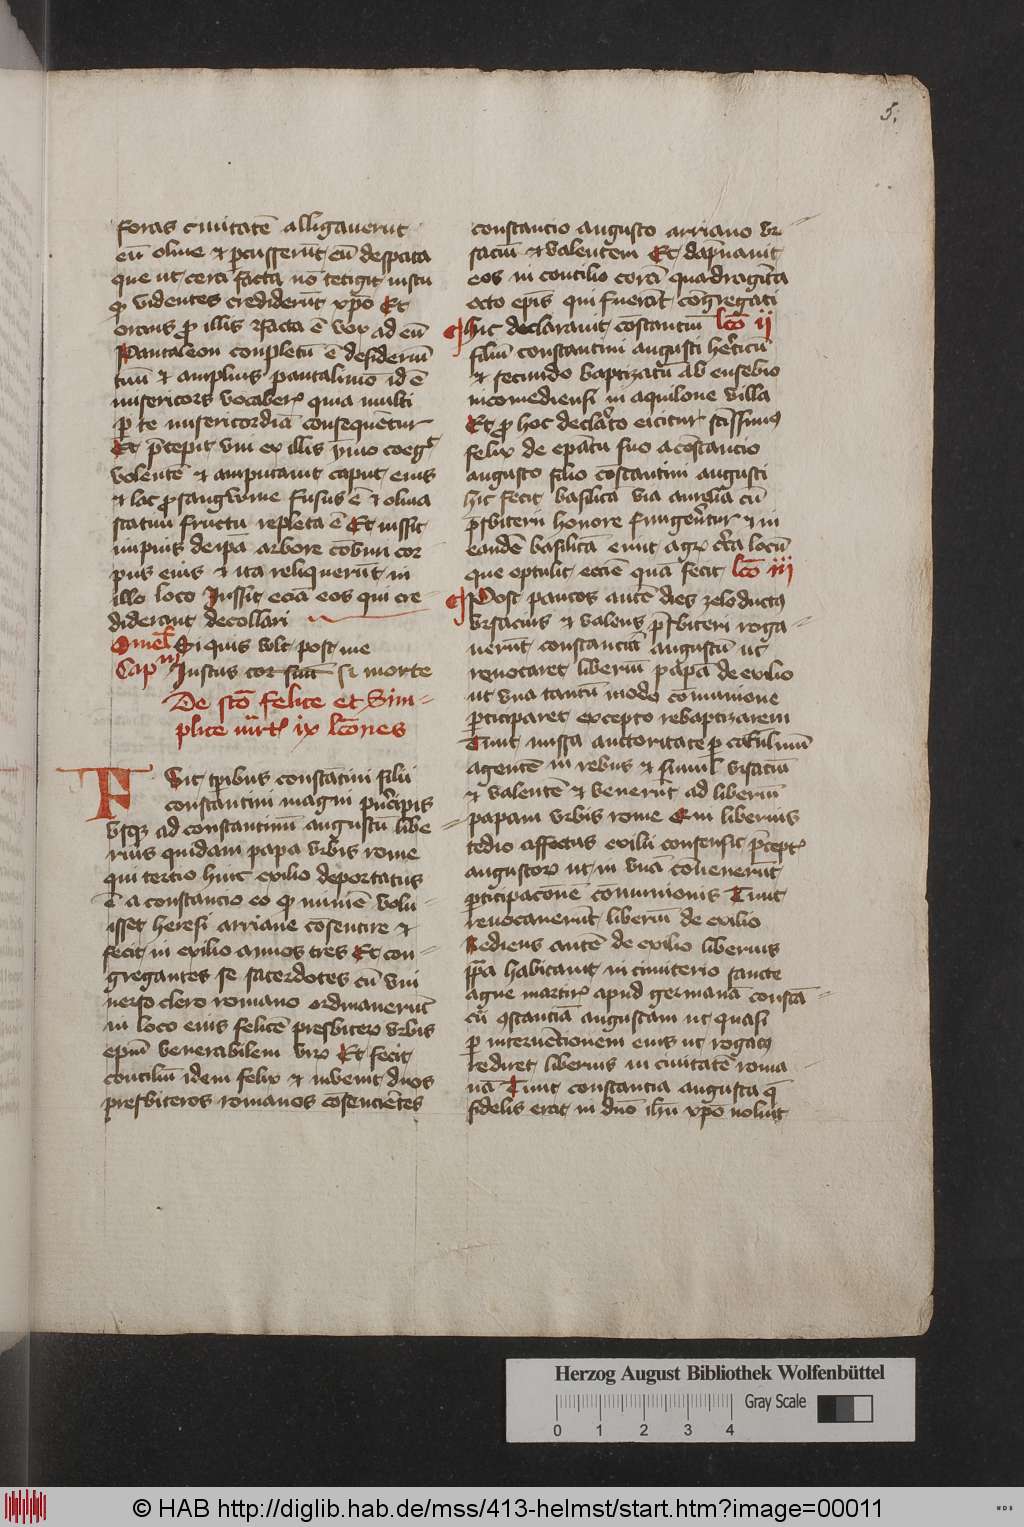 5.
foras ciuitatē alligauerūt
eū oliue et ꝑcusserūt eū despata
que ut cera facta nō tetigit iustū
qd videntes crediderūt xp̄o Et
illis facta ē vox ad eū
Pantaleon conpletū ē desideriū
tuū et amplius pantalimō id ē
misericors vocaberꝭ quia multi
ꝑ te misericordiā consequētur
Et p̄cepit vni ex illis
volentē et amputauit caput eius
et lac ꝓ sangwine fusus ē et oliua
statim fructu repleta ē Et iussit
impius de ipā arbore cōburi cor
pus eius et ita reliquerūt in
illo loco Iussit eciā eos qui cre
diderant decollari
Omeł Si quis wlt post me
Capm Iustus cor suū si morte
De sctō felice et Sim-
plice mrꝭ ix lcōnes
Fuit tp̄ibus constātini filii
constantini magni prīcipis
vsqꝫ ad constantinū augustū libe
rius quidam papa vrbis rome
qui tertio huic exilio deportatus
ē a constancio eo qd minīe volu-
isset heresi arriane cōsentire et
fecit in exilio annos tres Et con-
gregantes se sacerdotes cū vni
uerso clero romano ordinauerūt
in loco eius felicē presbiterꝭ vrbis
epm̄ venerabilem virꝭ Et fecit
conciliū idem felix et inuenit duos
presbiteros romanos cōsenciētes
constancio augusto arriano vr-
saciū et valentem Et dāpnauit
eos in concilio corā quadraginta
octo epīs qui fuerāt cōgregati
Hic declarauit cōstanciū lcō ii
filiū constantini augusti hēticū
et secundo baptizatū ab eusebio
nicomediensi in aquilone villa
Et ꝓ hoc declāto eicitur sctissimꝰ
felix de epātu suo a cōstancio
augusto filio cōstantini augusti
hic fecit basilicā via aurelia cū
pr̄sbiterii honore fungeretur et in
eandē basilicā emit agrꝭ circa locū
que optulit ecclē quā fecit lcō iii
Post paucos autē dies zeloductꝰ
vrsacius et valens pr̄sbiteri roga-
uerūt constanciū augustū ut
reuocaret liberiū papā de exilio
ut vna tantū modo cōmunione
ꝑticiparet excepto rebaptizarem
Tunc missa auctoritate ꝑ catulinū
agentē in rebus et simul vrsaciū
et valentē et venerūt ad liberiū
papam vrbis rome Qui liberius
tedio affectus exilii consensit p̄ceptꝭ
augustorꝭ ut in vnā cōuenerūt
ꝑticipacōnē cōmunionis Tunc
reuocauerūt liberiū de exilio
Rediens autē de exilio liberius
papa habitauit in cimiterio sancte
agne martirꝭ apud germanā constā-
cii 9stanciā augustam ut quasi
ꝑ interuēcionem eius ut rogatꝰ
rediret liberius in ciuitatē roma-
nā Tunc constancia augusta que
fidelis erat in dnō ihū xp̄o noluit
Herzog August Bibliothek Wolfenbüttel
Gray Scale
0 1 2 3 4
© HAB http://diglib.hab.de/mss/413-helmst/start.htm?image=00011
WDB